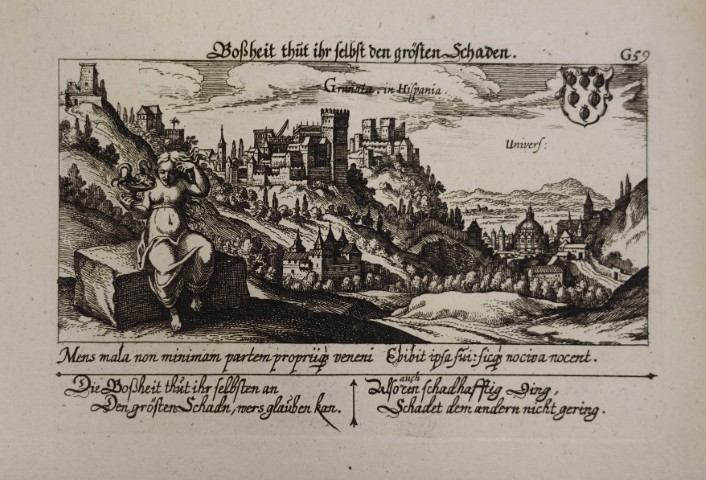 Boßheit thut ihr selbst den grösten Schaden.
G59
Granata. in Hispania.
Univers:
Mens mala non minimam partem propriiq; veneni Ebibit ipsa sui: sicq; nociva nocent.
Die Boßheit thut ihr selbsten an
Den grösten Schadn, wers glauben kan.
auch
Also ein schadhafftig Ding,
Schadet dem andern nicht gering.